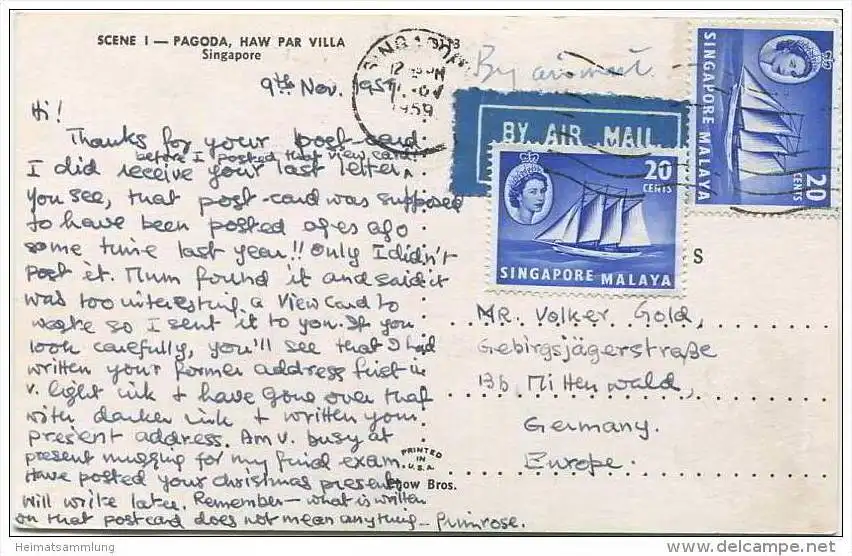 SCENE I — PAGODA, HAW PAR VILLA
Singapore
9th Nov. 1959
Hi!
Thanks for your post-card.
before I posted that view card!
I did receive your last letter
You see, that post-card was supposed
to have been posted ages ago.
some time last year!! Only I didn't
post it. Mum found it and said it
was too interesting a view card to
waste so I sent it to you. If you
look carefully, you'll see that I had
written your former address first in
v. light ink & have gone over that
with darker ink & written your
present address. Am v. busy at
present mugging for my final exam.
Have posted your christmas present.
Will write later. Remember – what is written
on that postcard does not mean anything – Primrose.
PRINTED
IN
U.S.A.
Bros.
SINGAPORE
1959
By airmail
BY AIR MAIL
20
CENTS
SINGAPORE MALAYA
20
CENTS
SINGAPORE MALAYA
S
Mr. Volker Gold,
Gebirgsjägerstraße
13b, Mittenwald,
Germany.
Europe.
Heimatsammlung
delcampe.net